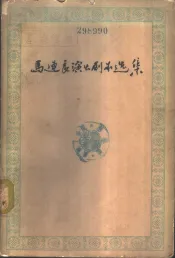 296990
馬連良演出劇本選集